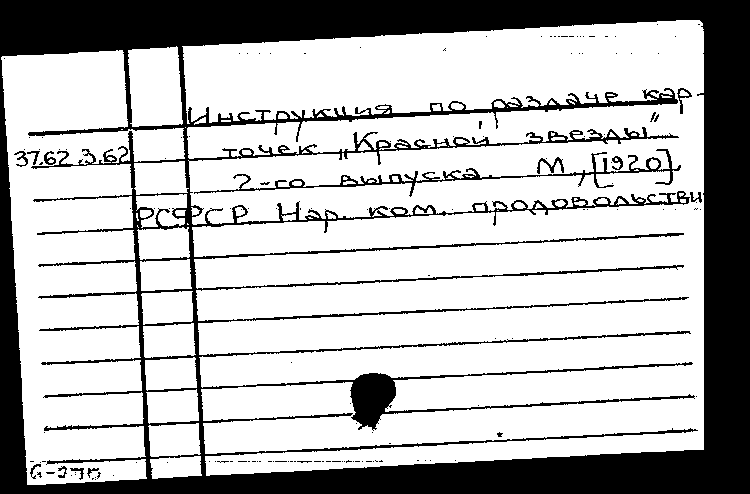 Инструкция по раздаче кар-
37.62.3.62 точек „Красной звезды"
2-го выпуска. М, [1920].
РСФСР Нар. ком. продовольстви